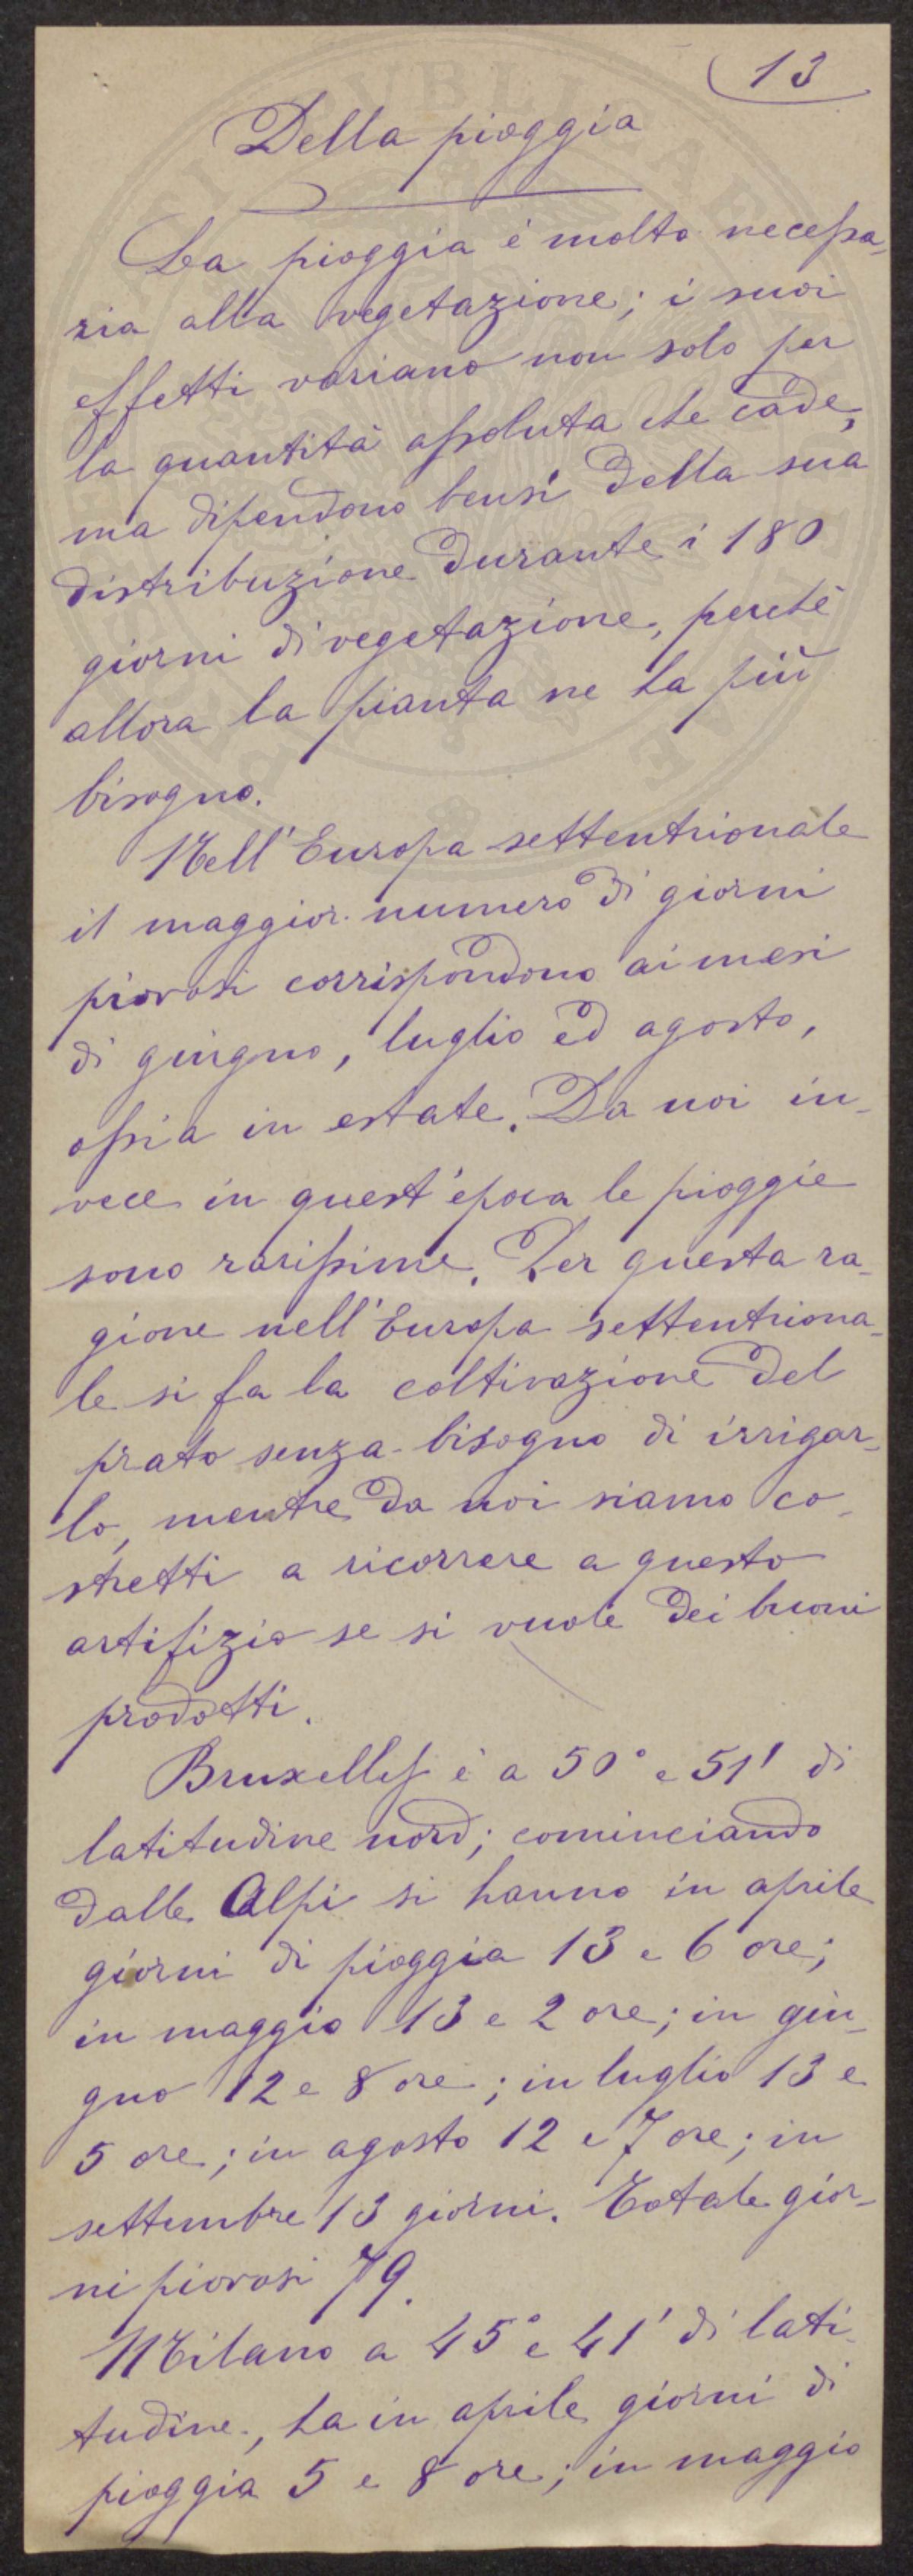 13
Della pioggia
La pioggia è molto necessa-
ria alla vegetazione; i suoi
effetti variano non solo per
la quantità assoluta che cade,
ma dipendono bensì della sua
distribuzione durante i 180
giorni di vegetazione, perchè
allora la pianta ne ha più
bisogno.
Nell'Europa settentrionale
il maggior numero di giorni
piovosi corrispondono ai mesi
di giugno, luglio ed agosto,
ossia in estate. Da noi in-
vece in quest'epoca le pioggie
sono rarissime. Per questa ra-
gione nell'Europa settentriona-
le si fa la coltivazione del
prato senza bisogno di irrigar-
lo, mentre da noi siamo co-
stretti a ricorrere a questo
artifizio se si vuole dei buoni
prodotti.
Bruxelles è a 50° e 51' di
latitudine nord; cominciando
dalle Alpi si hanno in aprile
giorni di pioggia 13 e 6 ore;
in maggio 13 e 2 ore; in giu-
gno 12 e 8 ore; in luglio 13 e
5 ore; in agosto 12 e 7 ore; in
settembre 13 giorni. Totale gior-
ni piovosi 79.
Milano a 45° e 41' di lati-
tudine, ha in aprile giorni di
pioggia 5 e 8 ore; in maggio